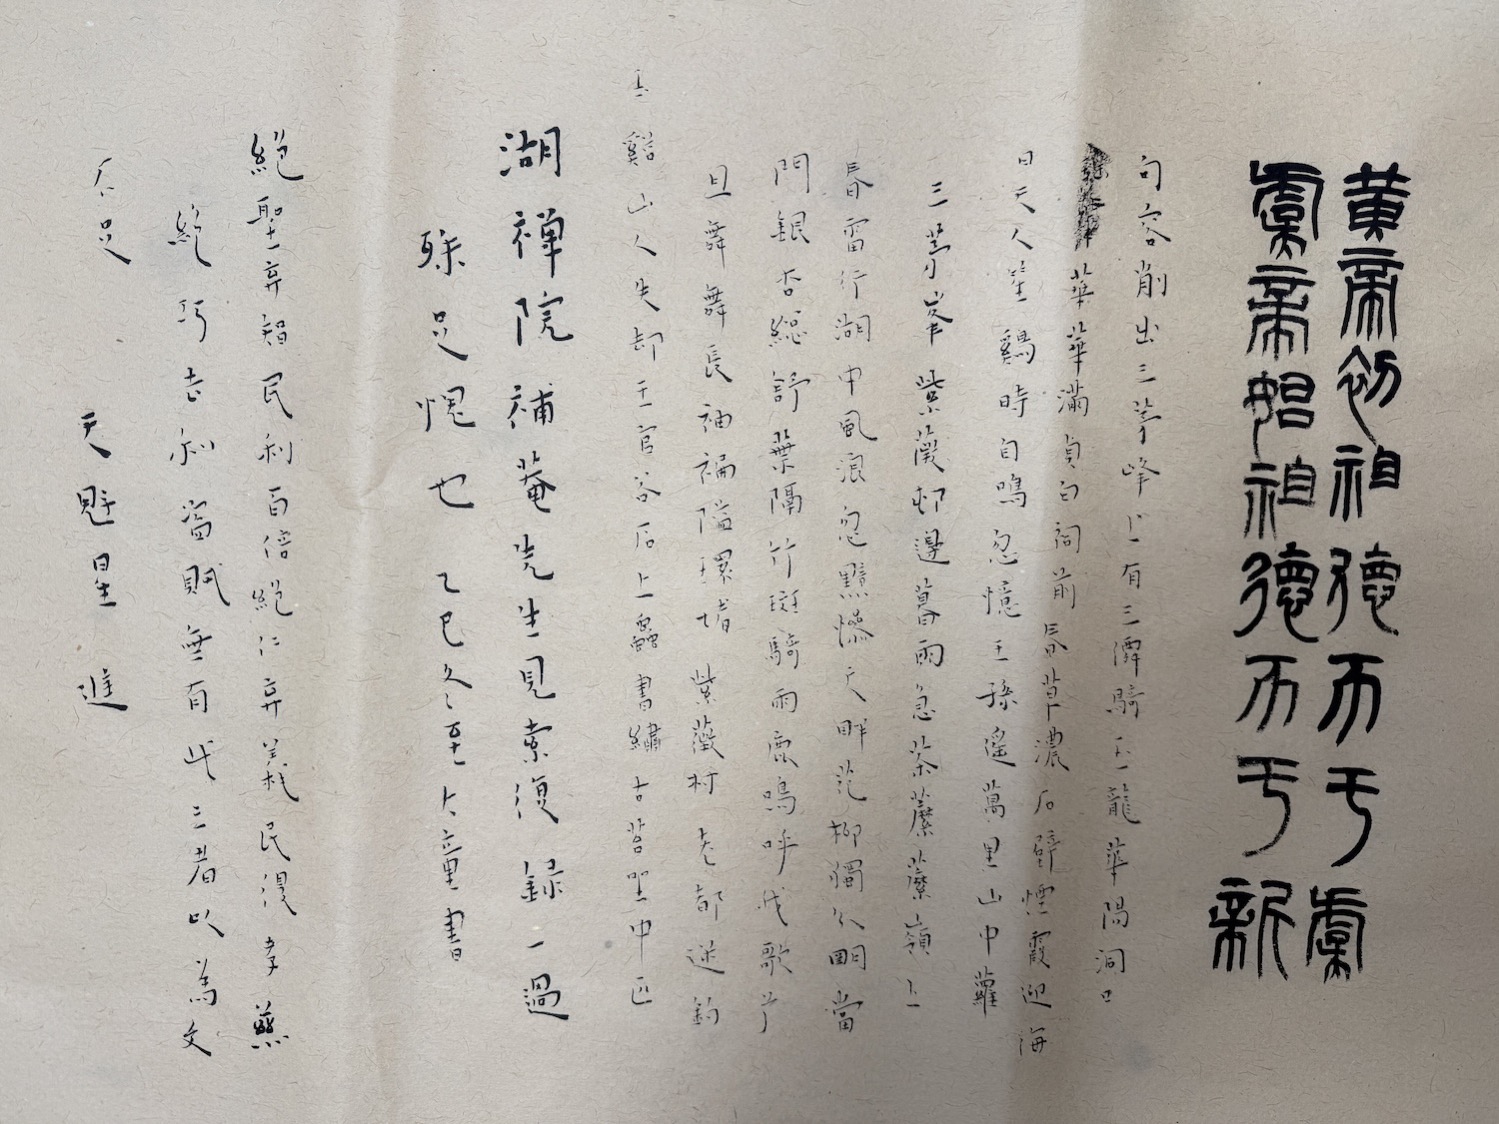 黃帝初祖德帀于虞
虞帝始祖德帀于新
句容削出三茅峰上有三僊騎玉龍華陽洞口
華華滿貞白祠前春草濃石壁煙霞迎海
日天人笙鷄時自鳴忽憶王孫遙萬里山中蘿
三茅峯紫薇邨邊暮雨急荼蘼蘼嶺上
春雷行湖中風浪忽黯慘天畔花柳獨分明當
門銀杏總舒葉隔竹斑騎雨鹿鳴呼伐歌于
旦舞舞長袖褊隘環堵紫薇村老都送釣
玉谿山人失却王官谷石上蟲書繡古苔聖中正
湖禅院補菴先生見索復録一過
殊足愧也乙巳冬至大章書
絕聖弃智民利百倍絕仁弃義民復孝慈
絕巧去利盜賊無有此三者以為文
不足
天魁星 進